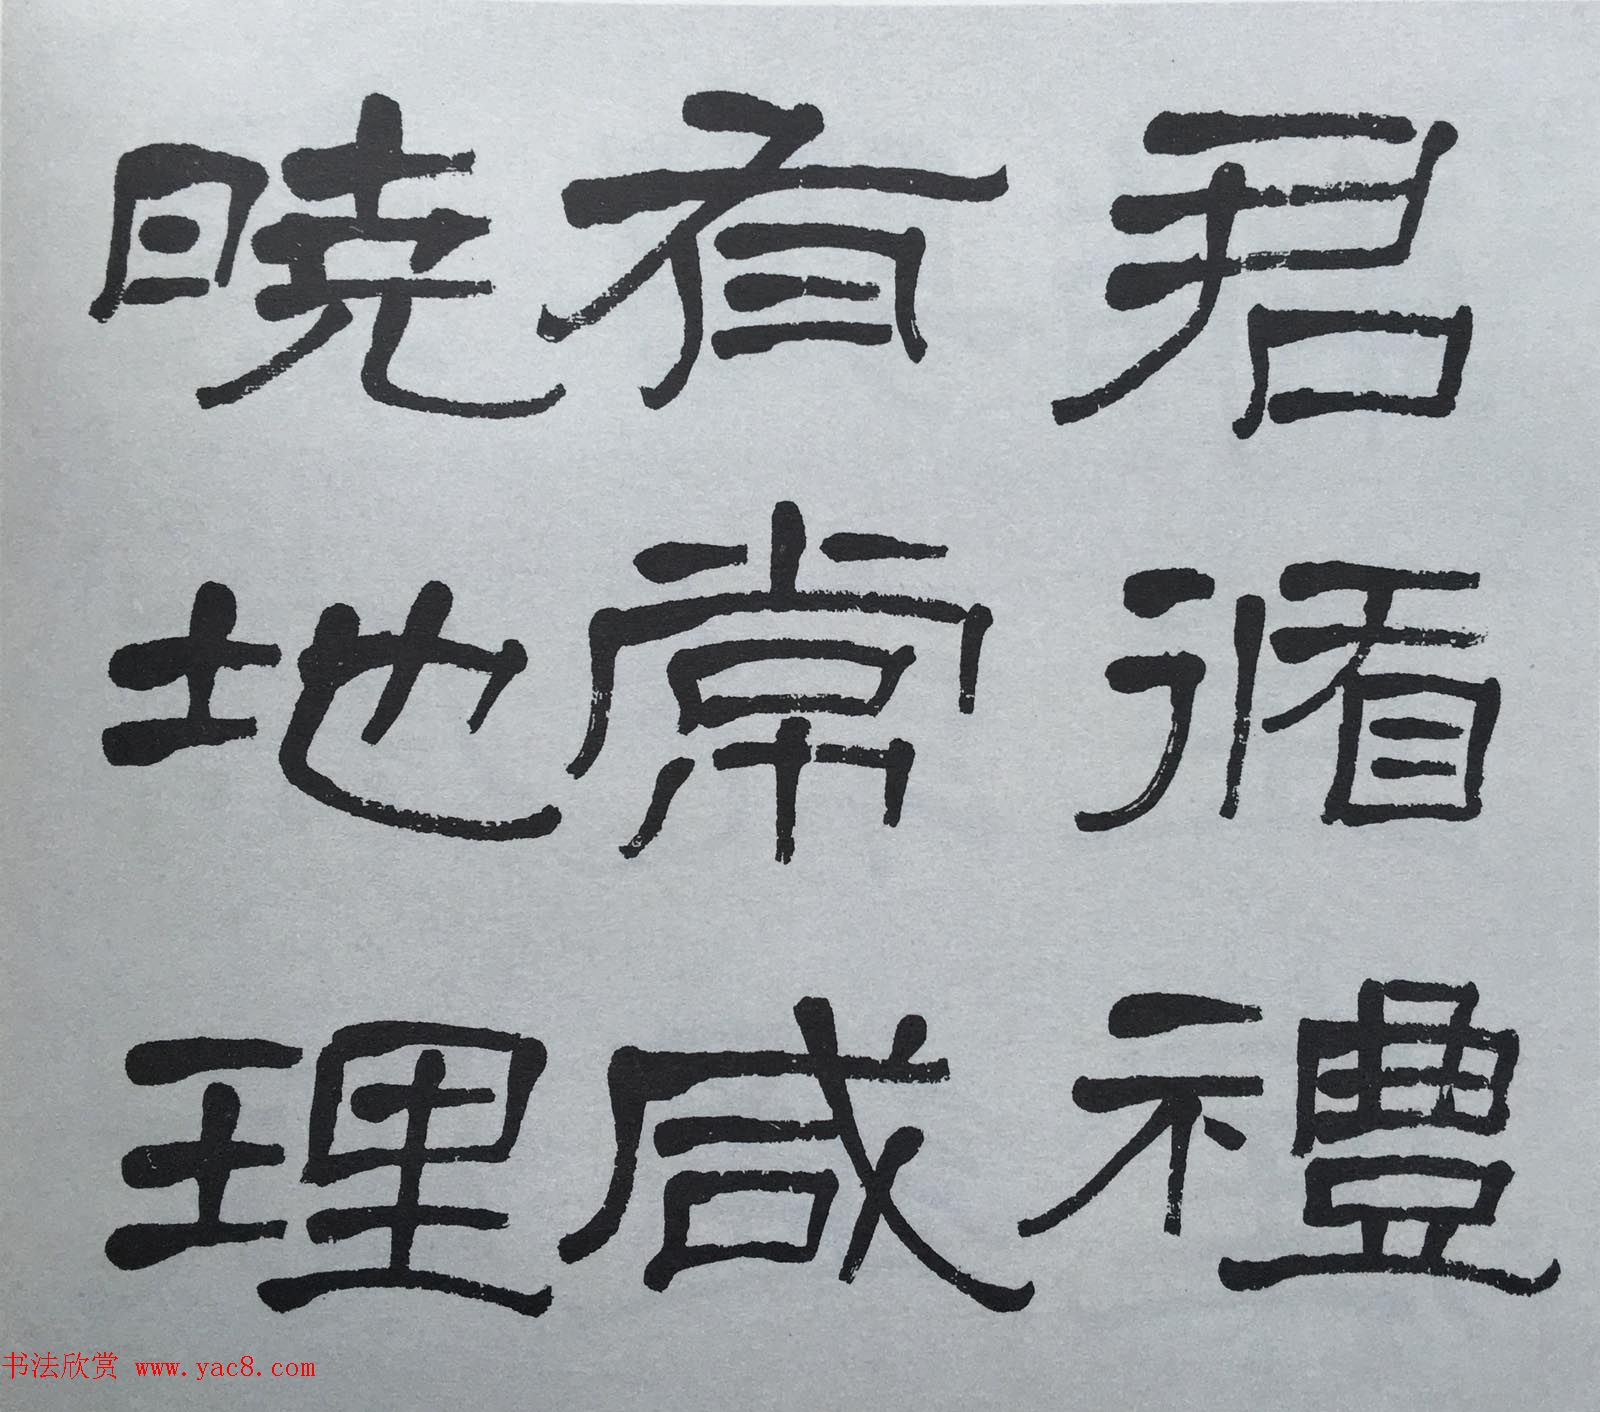 君循禮
有常咸
曉地理
书法欣赏 www.yac8.com